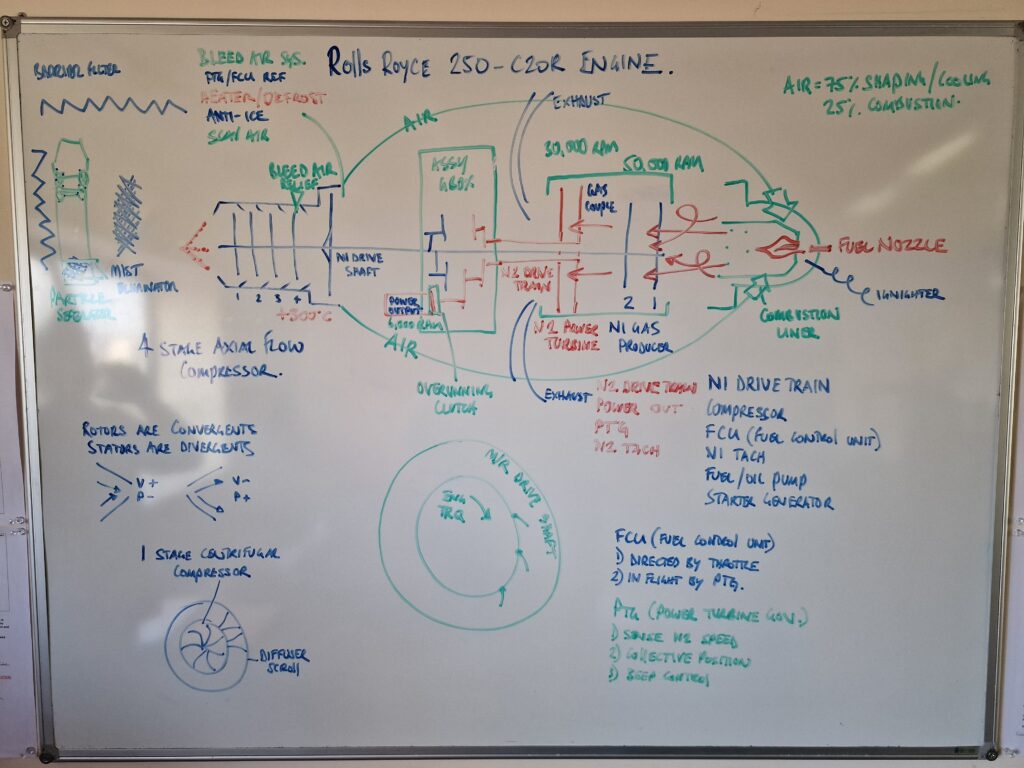 Rolls Royce 250-C20R ENGINE.
BARRIER FILTER
BLEED AIR SYS.
PTG/FCU REF
HEATER/DEFROST
ANTI-ICE
SCAV AIR
AIR = 75% SHAPING/COOLING
25% COMBUSTION.
EXHAUST
AIR
30,000 RAM
50,000 RAM
ASSY
GBOX
BLEED AIR
RELIEF
GAS
COUPLE
N1 DRIVE
SHAFT
FUEL NOZZLE
MIST
ELIMINATOR
PARTICLE
SEPERATOR
1 2 3 4
+300°C
POWER
OUTPUT
6,000 RAM
AIR
N2 DRIVE
TRAIN
2 1
IGNIGHTER
COMBUSTION
LINER
N2 POWER
TURBINE
N1 GAS
PRODUCER
4 STAGE AXIAL FLOW
COMPRESSOR.
OVERUNNING
CLUTCH
EXHAUST
N2 DRIVE TRAIN
POWER OUT
PTG
N2 TACH
N1 DRIVE TRAIN
COMPRESSOR
FCU (FUEL CONTROL UNIT)
N1 TACH
FUEL/OIL PUMP
STARTER GENERATOR
ROTORS ARE CONVERGENTS
STATORS ARE DIVERGENTS
V+
P-
V-
P+
M/R DRIVE SHAFT
ENG
TRQ
1 STAGE CENTRIFUGAR
COMPRESSOR
DIFFUSER
SCROLL
FCU (FUEL CONTROL UNIT)
1) DIRECTED BY THROTTLE
2) IN FLIGHT BY PTG.
PTG (POWER TURBINE GOV.)
1) SENSE N2 SPEED
2) COLLECTIVE POSITION
3) BEEP CONTROL